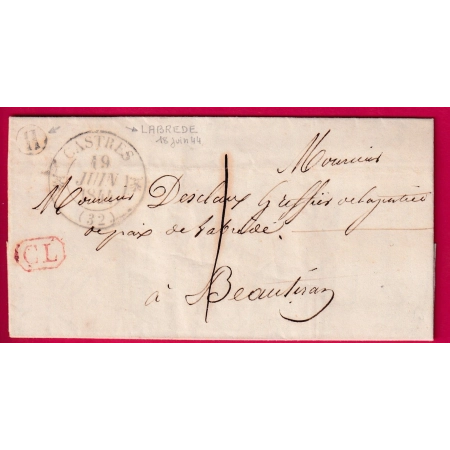 H
LABREDE
18 juin 44
CASTRES
19
JUIN
1844
(32)
Monsieur
Monsieur Desclaux Greffier de la justice
de paix de Labrède.
CL
1
à Beautiran